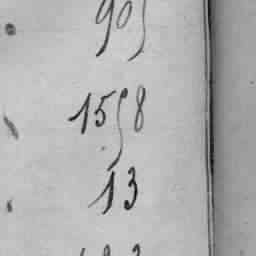 905
1598
13